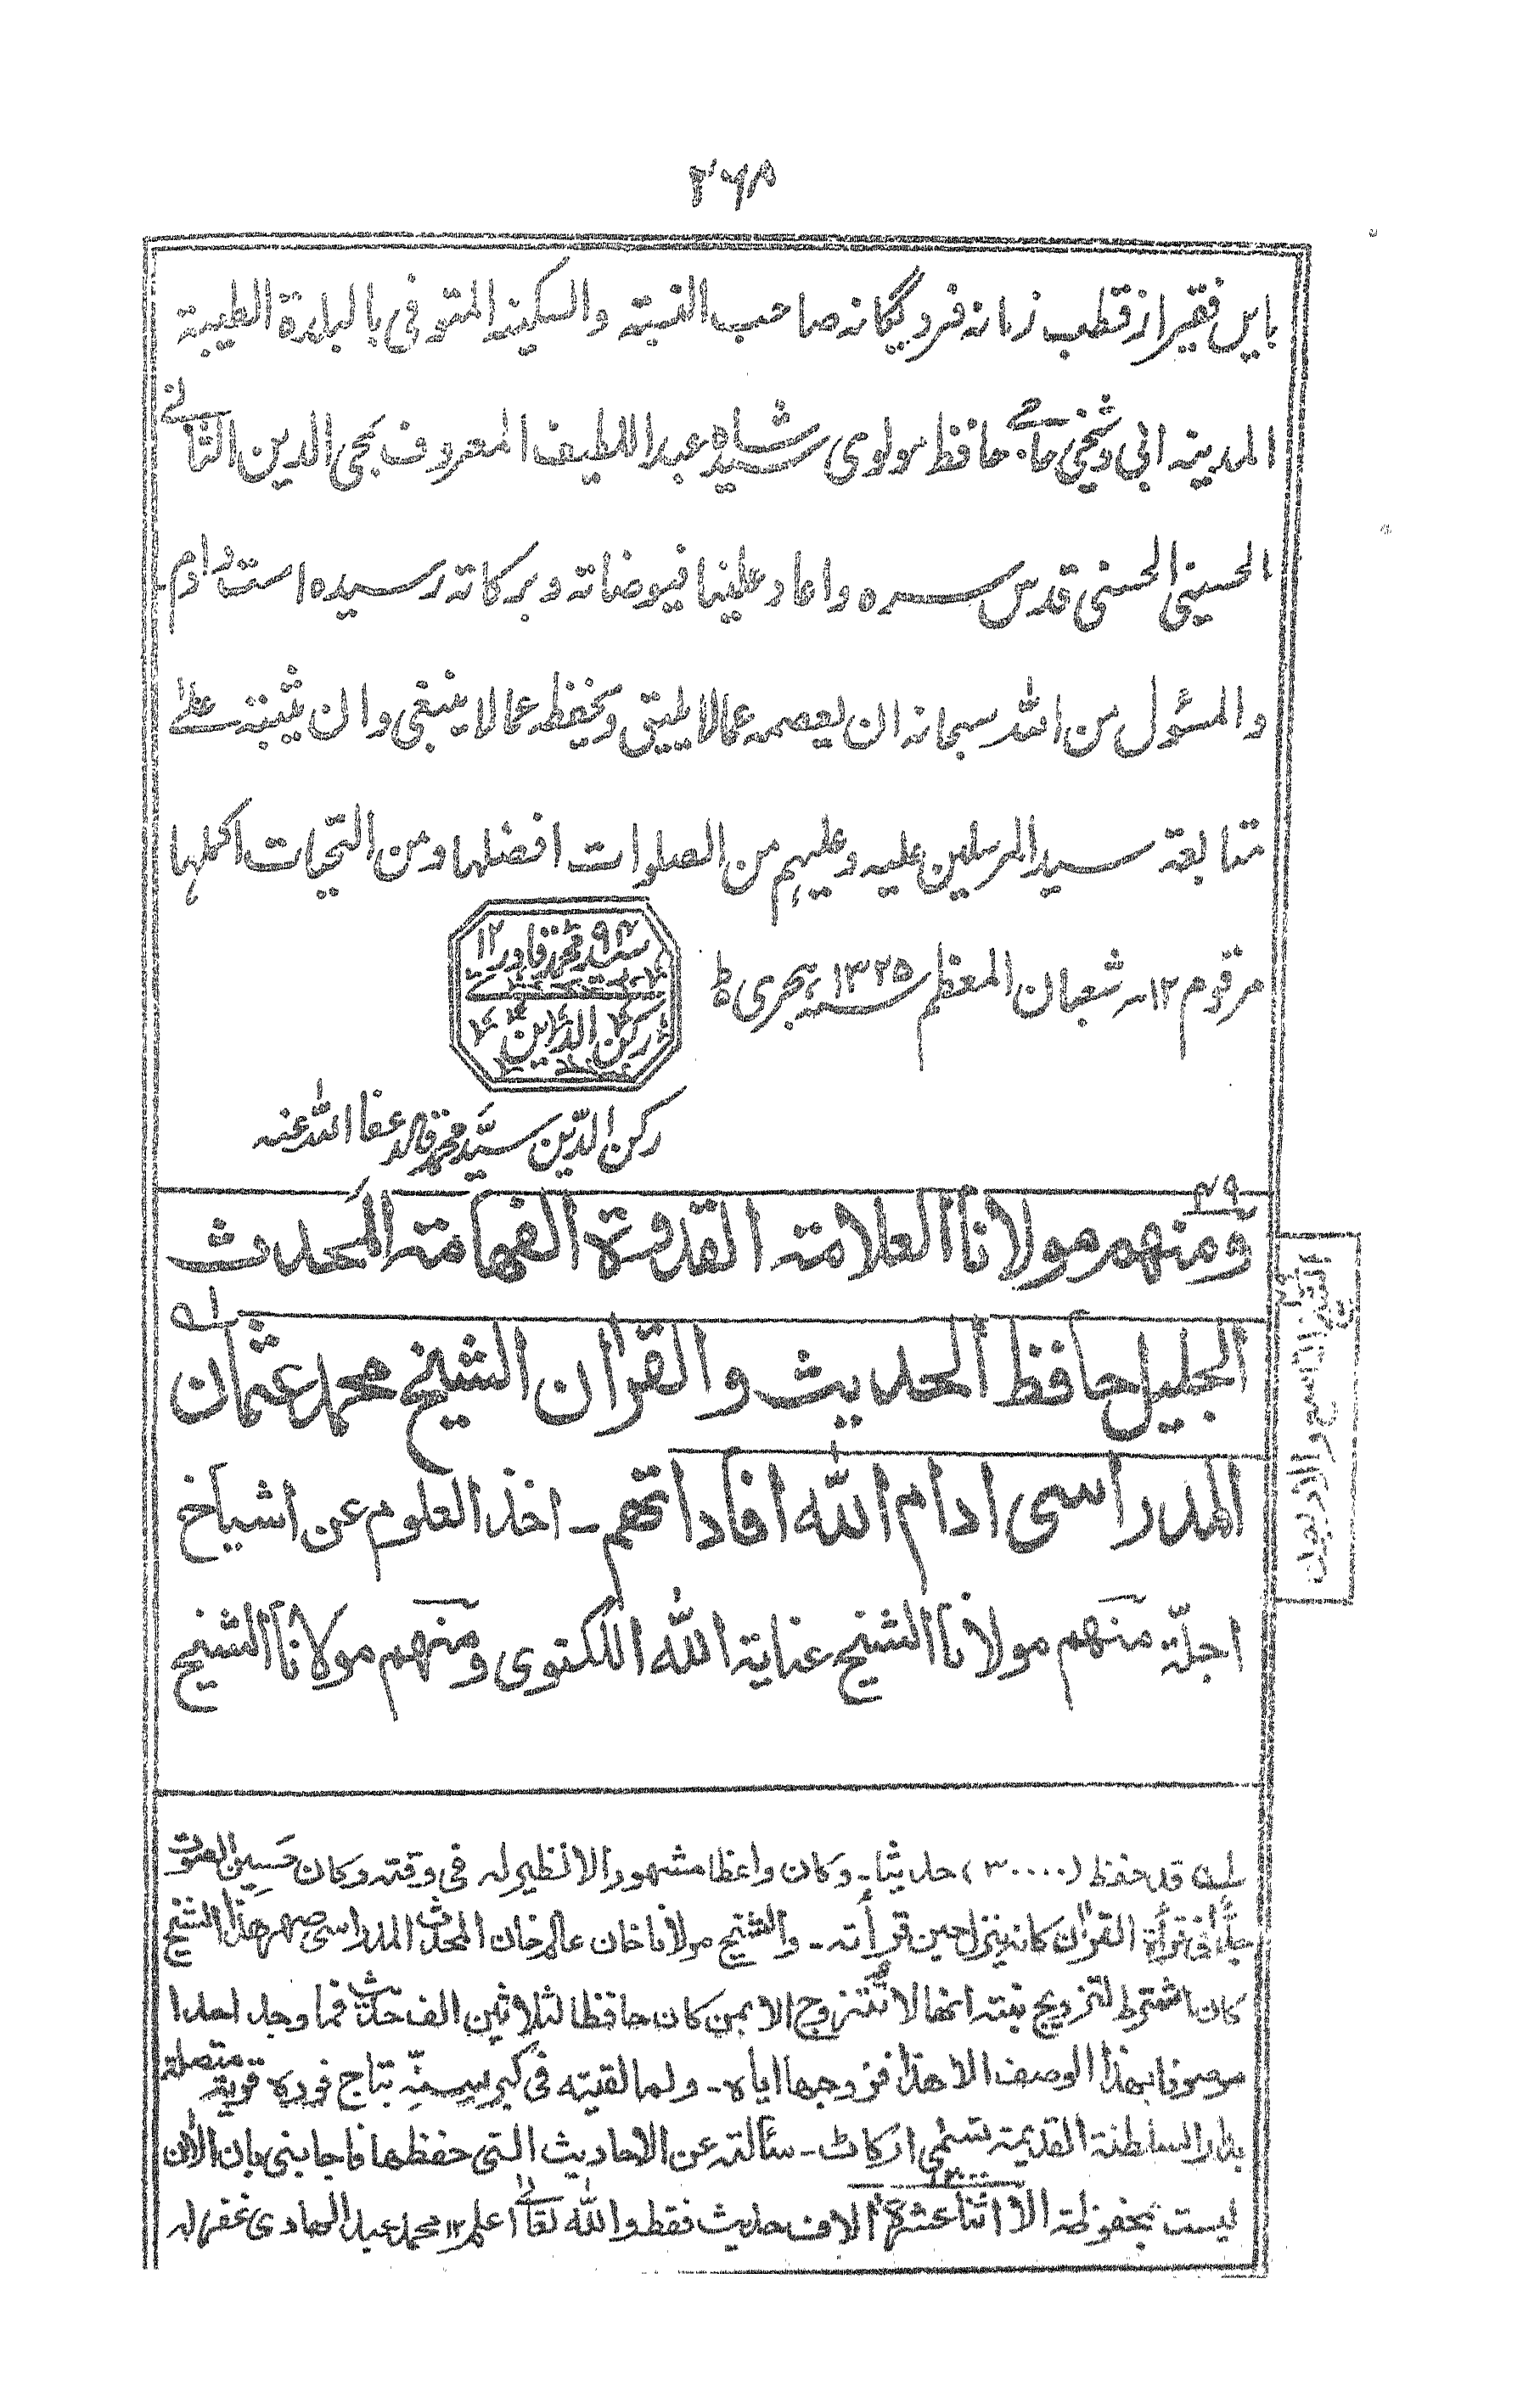 ۲۶۸
باین فقیر از قطب زمانه فرد یگانه صاحب النسبته والسکینه المتوفی بالبلدة الطیبة
المدینه ابی وشیخی حاجی حافظ مولوی سید شاه عبداللطیف المعروف بمحی الدین الثانی
الحسینی الحسنی قدس سره واعاد علینا فیوضاته وبرکاته رسیده است دادم
والمسئول من الله سبحانه ان یعصمه عمالا یلیق ویحفظه عمالا ینبغی وان یثبته علی
متابعة سید المرسلین علیه وعلیهم من الصلوات افضلها ومن التحیات اکملها
مرقوم ۱۲ شعبان المعظم سنه ۱۳۲۵ هجری
سید محمد قادری
رکن الدین
رکن الدین سید محمد قادری عفا الله عنه
۴۹
ومنهم مولانا العلامته القدوة الفهامته المحدث
الجلیل حافظ الحدیث والقرآن الشیخ محمد عثمان
المدراسی ادام الله افاداتهم ـ اخذ العلوم عن اشیاخ
اجلّة منهم مولانا الشیخ عنایة الله اللکنوی ومنهم مولانا الشیخ
الشیخ التاسع والاربعون
له قد حفظ (۳۰۰۰۰) حدیثا ـ وکان واعظا مشهورا لا نظیر له فی وقته وکان حسین الصوت
جدًّا فی قرأة القرآن کانه ینزل حین قرأته ـ والشیخ مولانا خان عالم خان المحدث المدراسی صهر هذا الشیخ
کان اشترط لتزویج بنته انها لا تتزوج الا بمن کان حافظا لثلاثین الف حدیث فما وجد احدا
موصوفا بهذا الوصف الا هذا فزوجها ایاه ـ ولما لقیته فی کبر سنه قریة متصلة
بدار السلطنة القدیمة تسمی ارکاٹ ـ سئالته عن الاحادیث التی حفظها فاجابنی بان الآن
لیست بمحفوظة الا اثنا عشرة آلاف حدیث فقط والله تعالی اعلم ۱۲ محمد عبد الهادی غفر له
۱۲۰۰۰